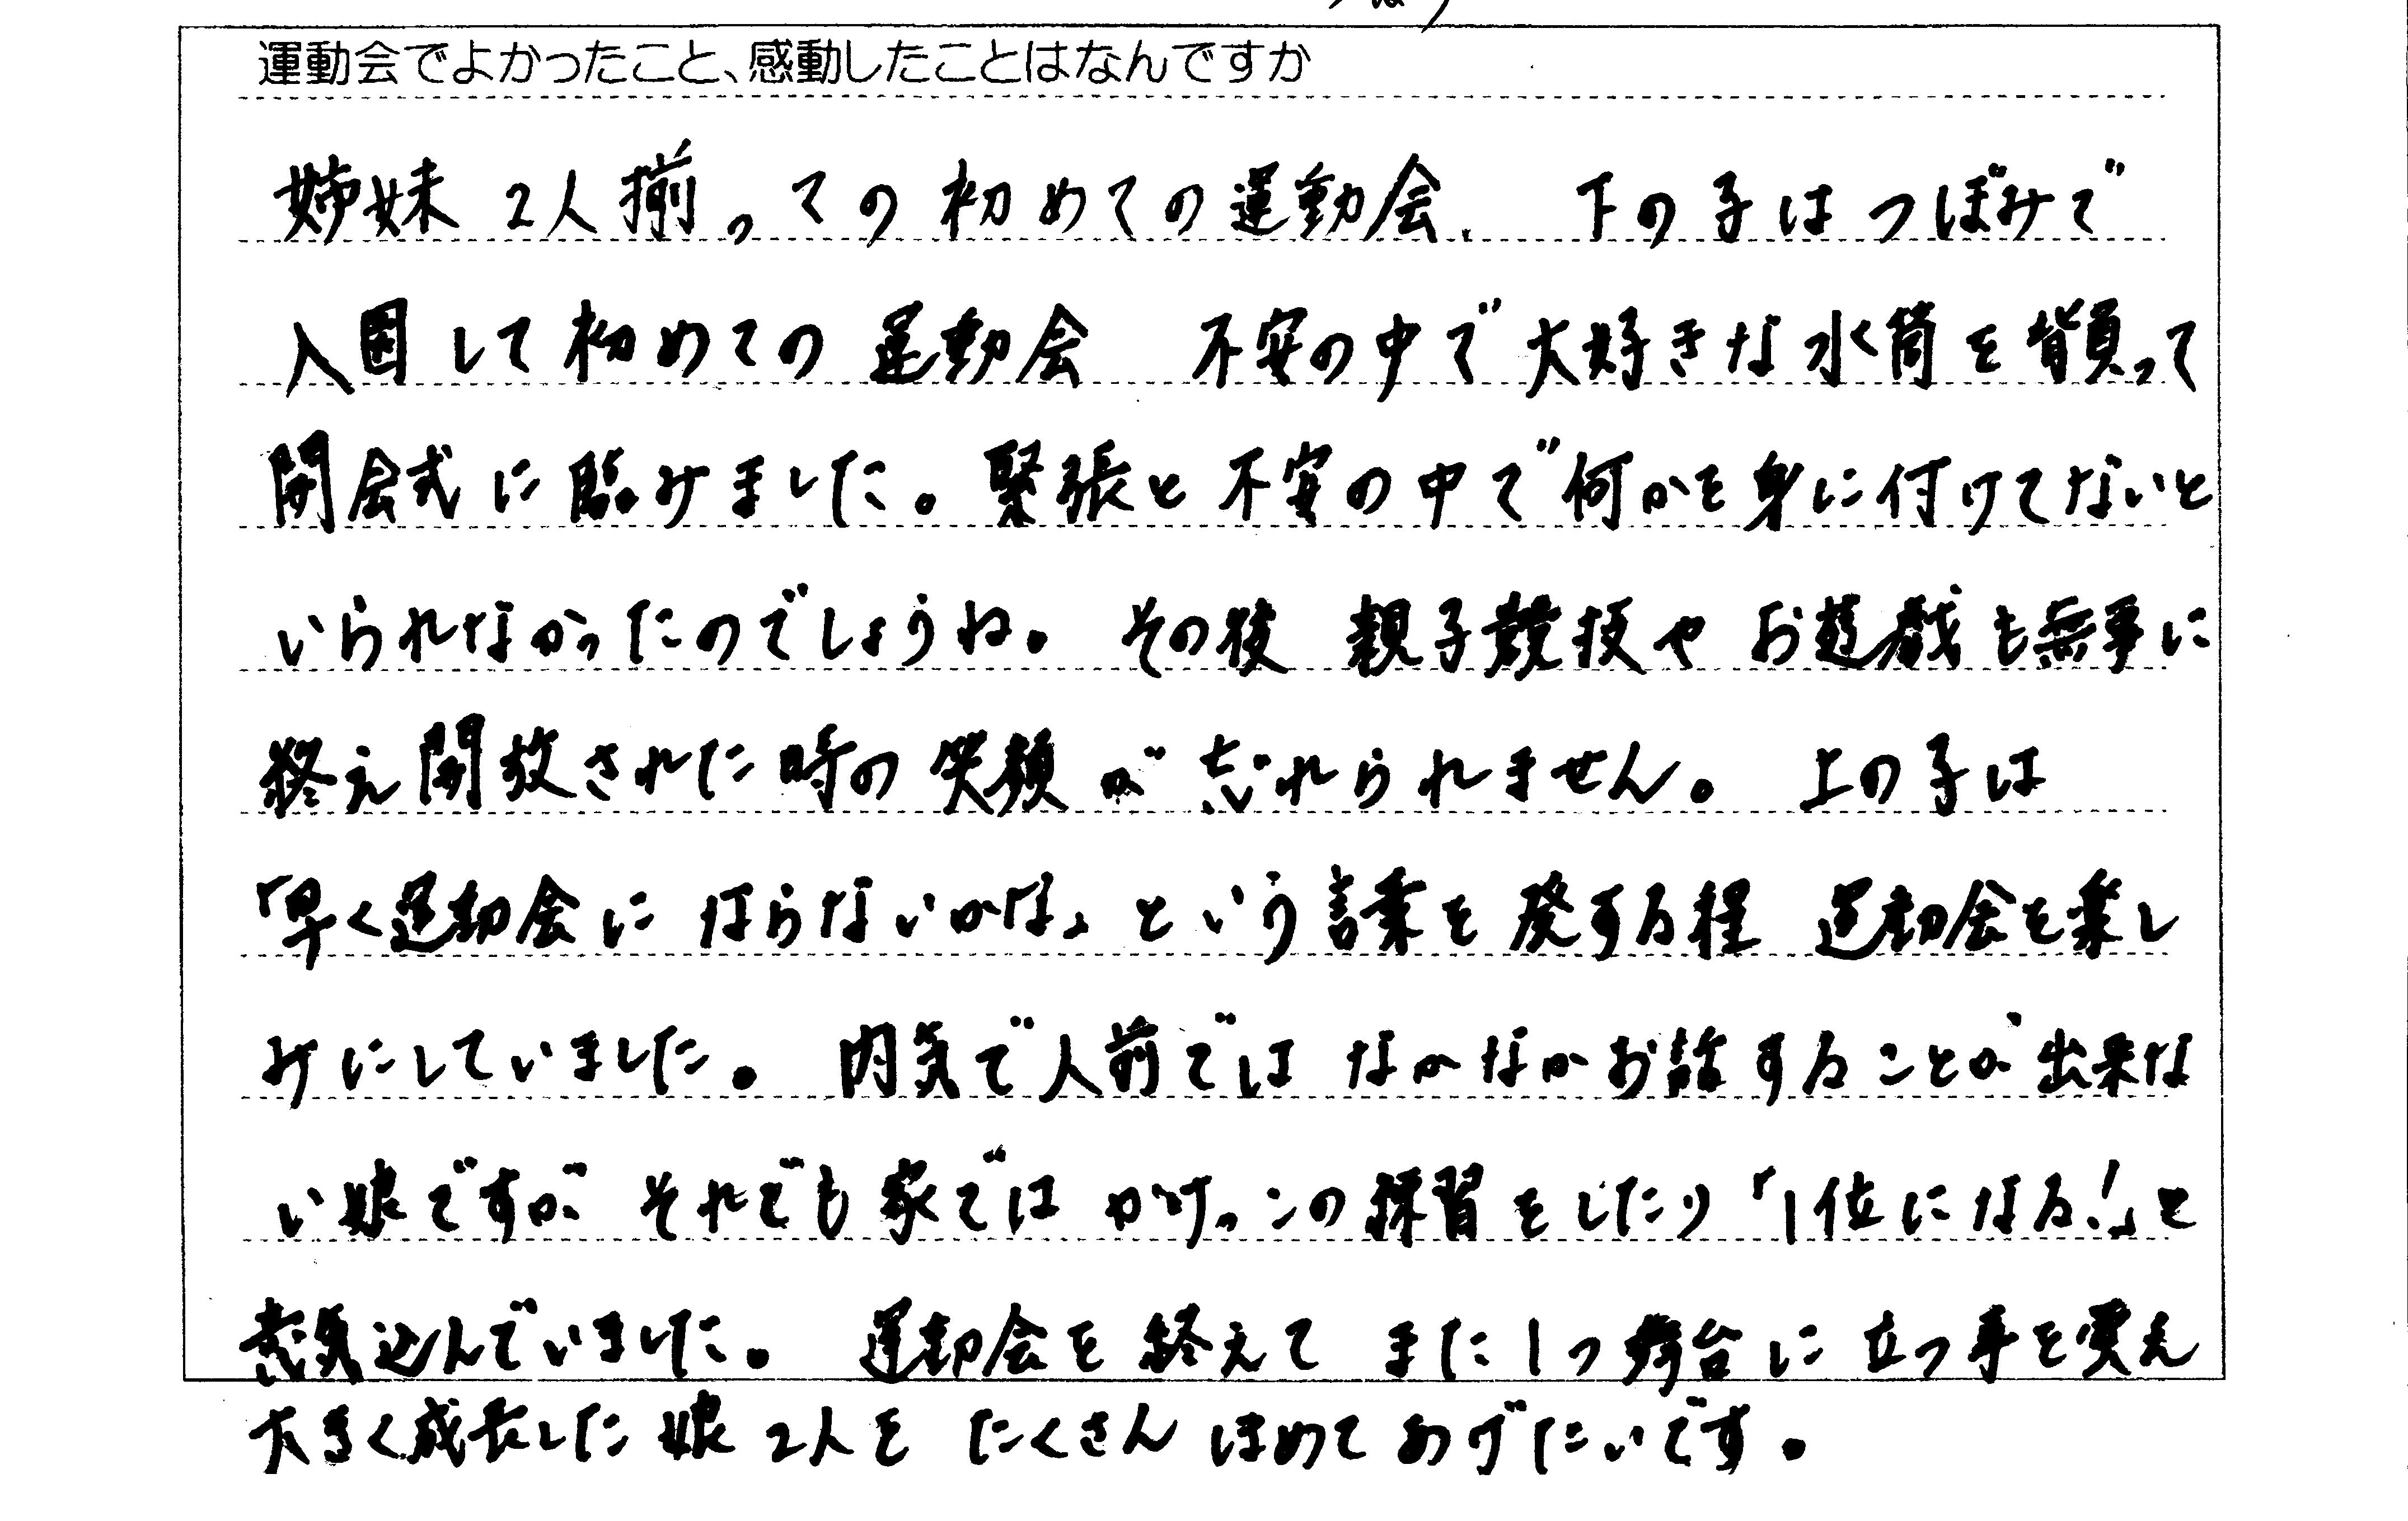 運動会でよかったこと、感動したことはなんですか
姉妹 2人揃っての初めての運動会、 下の子はつぼみで
入園して初めての運動会 不安の中で大好きな水筒を背負って
開会式に臨みました。緊張と不安の中で何かを身に付けてないと
いられなかったのでしょうね。 その後 親子競技や お遊戯も無事に
終え開放された時の笑顔が忘れられません。 上の子は
「早く運動会に ならないかな」という言葉を発する程 運動会を楽し
みにしていました。 内気で人前では なかなかお話することが出来な
い娘ですが それでも家では かけっこの練習をしたり「1位になる!」と
意気込んでいました。 運動会を終えて また1つ舞台に立つ事を覚え
大きく成長した娘 2人を たくさん ほめてあげたいです。